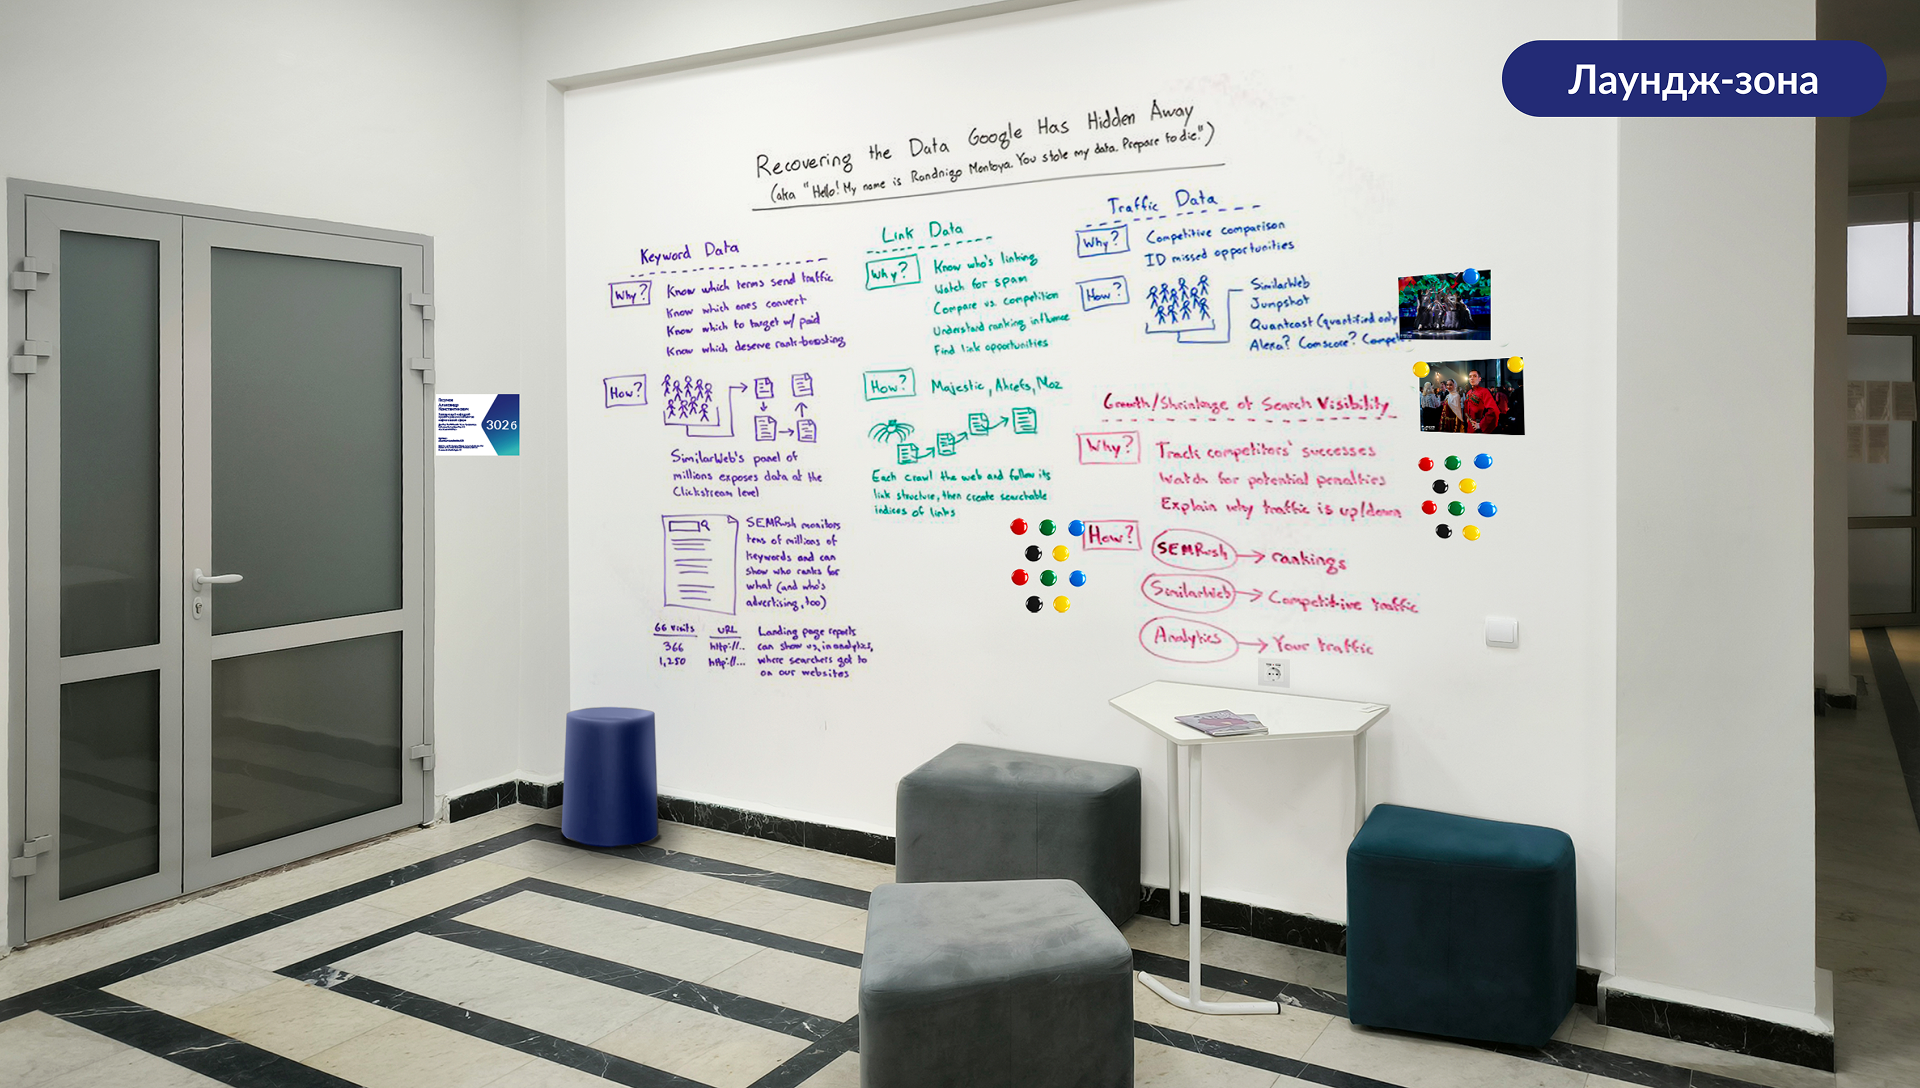 Лаундж-зона
Recovering the Data Google Has Hidden Away
(aka "Hello! My name is Randnigo Montoya. You stole my data. Prepare to die.")
Keyword Data
Why?
Know which terms send traffic
Know which ones convert
Know which to target w/ paid
Know which deserve rank-boosting
How?
SimilarWeb's panel of
millions exposes data at the
Clickstream level
SEMRush monitors
tens of millions of
keywords and can
show who ranks for
what (and who's
advertising, too)
66 visits
366
1,250
URL
http://...
http://...
Landing page reports
can show us, in analytics,
where searchers got to
on our websites
Link Data
Why?
Know who's linking
Watch for spam
Compare vs. competition
Understand ranking influence
Find link opportunities
How?
Majestic, Ahrefs, Moz
Each crawl the web and follow its
link structure, then create searchable
indices of links
Traffic Data
Why?
Competitive comparison
ID missed opportunities
How?
SimilarWeb
Jumpshot
Quantcast (quantified only
Alexa? Comscore? Compe
Growth/Shrinkage of Search Visibility
Why?
Track competitors' successes
Watch for potential penalties
Explain why traffic is up/down
How?
SEMRush → rankings
SimilarWeb → Competitive traffic
Analytics → Your traffic
3026